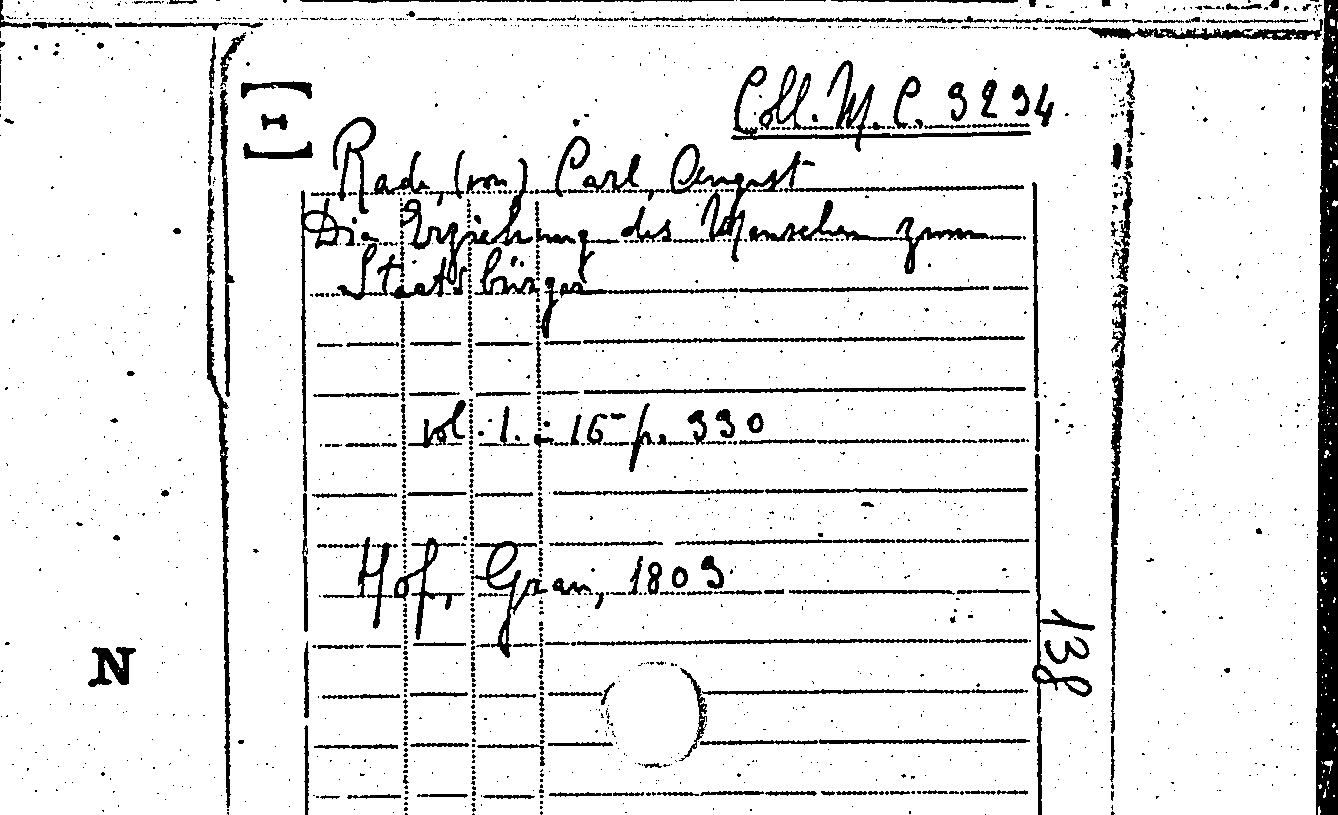 Coll. M. C. 3234
[I]
Rade, (von) Carl, August
Die Erziehung des Menschen zum
Staatsbürger
vol. 1. : 16- p. 330
Hof, Grau, 1803
138
N